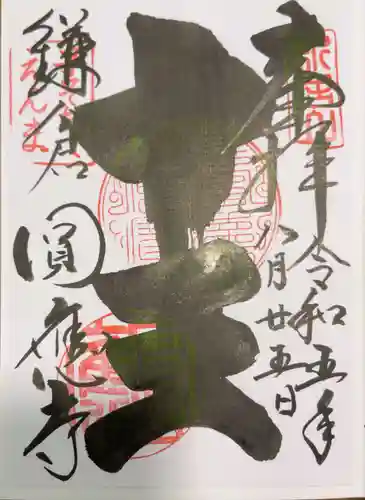 奉拝
令和五年
八月廿五日
十王
鎌倉
圓應寺